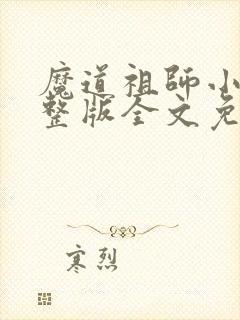 魔道祖師小
整版全文免
寒烈